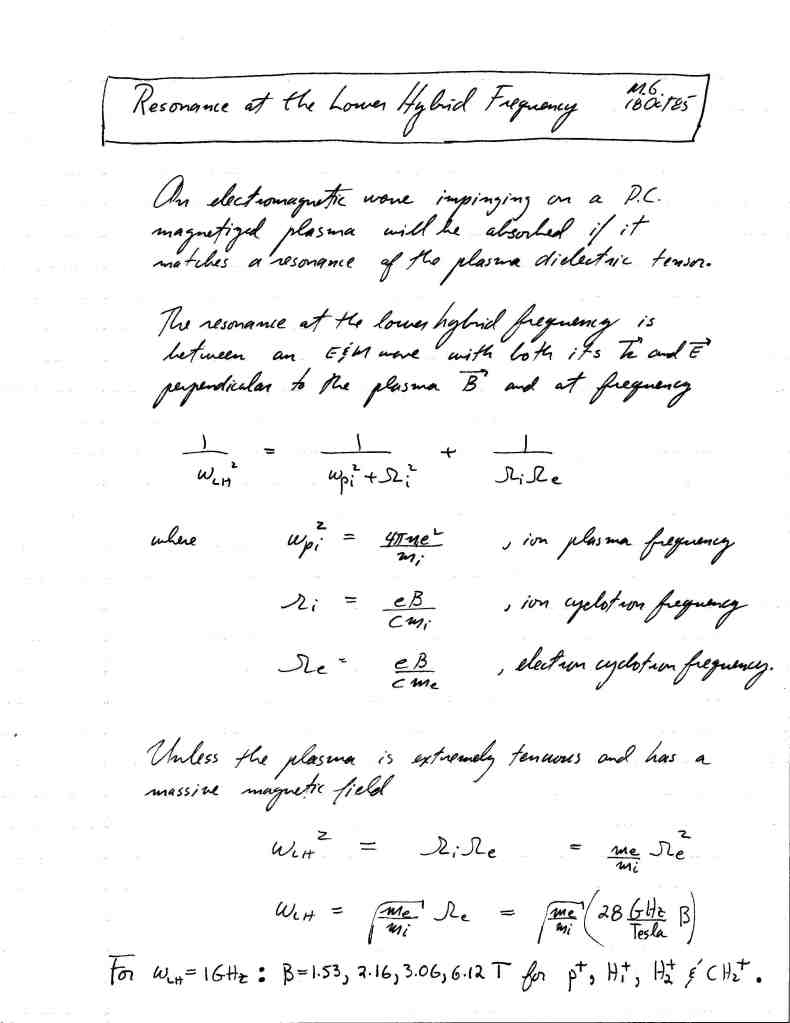 Resonance at the Lower Hybrid Frequency
M.G.
18 Oct 85
An electromagnetic wave impinging on a D.C.
magnetized plasma will be absorbed if it
matches a resonance of the plasma dielectric tensor.
The resonance at the lower hybrid frequency is
between an E&M wave with both its k⃗ and E⃗
perpendicular to the plasma B⃗ and at frequency
1/ω_LH² = 1/(ω_pi² + Ω_i²) + 1/(Ω_i Ω_e)
where ω_pi² = 4πne²/m_i , ion plasma frequency
Ω_i = eB/(c m_i) , ion cyclotron frequency
Ω_e = eB/(c m_e) , electron cyclotron frequency.
Unless the plasma is extremely tenuous and has a
massive magnetic field
ω_LH² = Ω_i Ω_e = (m_e/m_i) Ω_e²
ω_LH = √(m_e/m_i) Ω_e = √(m_e/m_i) (28 GHz/Tesla B)
For ω_LH = 1GHz : B = 1.53, 2.16, 3.06, 6.12 T for p⁺, H₁⁺, H₂⁺ & CH₂⁺.